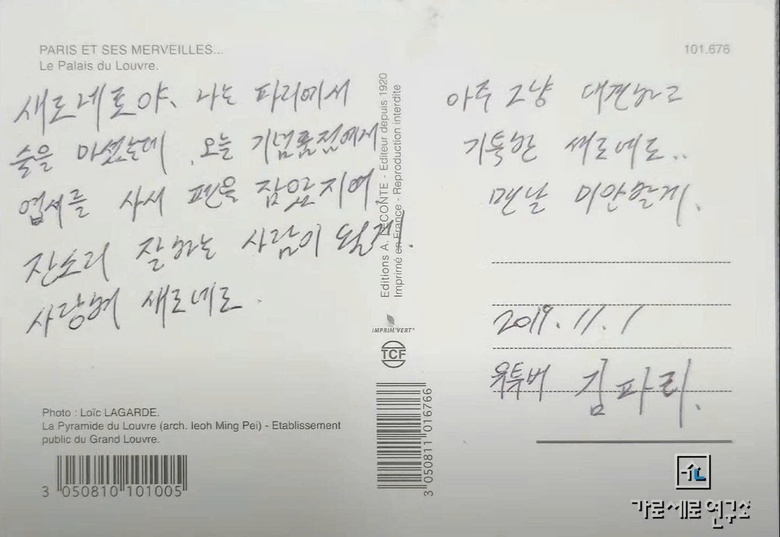 PARIS ET SES MERVEILLES...
Le Palais du Louvre.
101.676
새로네로야. 나는 파리에서
술을 마셨는데 오늘 기념품점에서
엽서를 사서 펜을 잡았지여.
잔소리 잘하는 사람이 될게.
사랑해 새로네로.
아주 그냥 대견하고
기특한 새로네로..
맨날 미안할게.
2019. 11. 1
유투버 김파리.
Editions A. LECONTE - Editeur depuis 1920
Imprimé en France - Reproduction interdite
IMPRIM'VERT®
TCF
3 050811 016766
Photo : Loïc LAGARDE.
La Pyramide du Louvre (arch. Ieoh Ming Pei) - Etablissement
public du Grand Louvre.
3 050810 101005
가로세로연구소